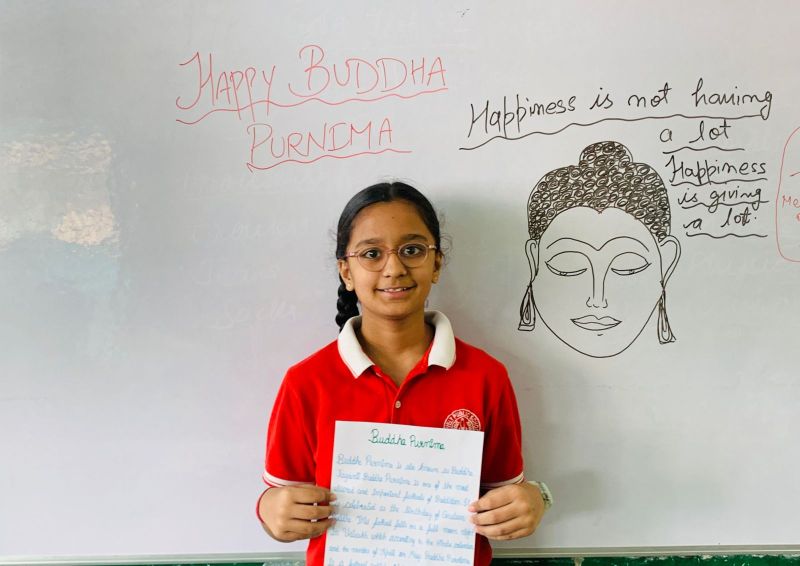 HAPPY BUDDHA
PURNIMA
Happiness is not having
a lot
Happiness
is giving
a lot.
Me
Buddha Purnima
Buddha Purnima is also known as Buddha
Jayanti Buddha Purnima is one of the most
and important festivals of Buddhism. It
is celebrated as the birthday of Gautama
Buddha. This festival falls on a full moon
in Vaisakh which according to the Hindu calendar
and the months of April or May Buddha Purnima
is a festival
PUBLIC